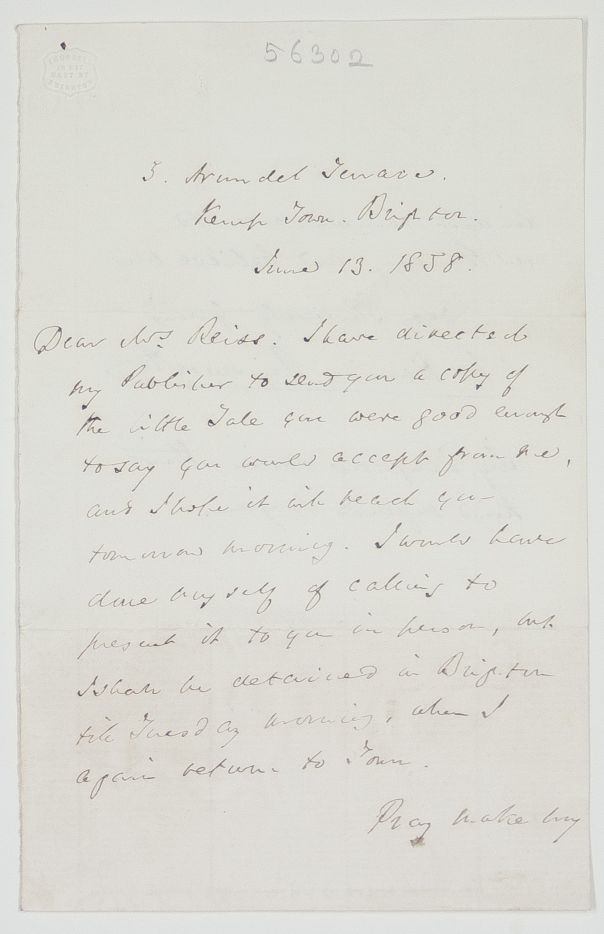 56302
3. Arundel Terrace.
Kemp Town. Brighton.
June 13. 1858.
Dear Mrs Reiss. I have directed
my Publisher to send you a copy of
the little Tale you were good enough
to say you would accept from me,
and I hope it will reach you
tomorrow morning. I would have
done myself of calling to
present it to you in person, but
I shall be detained in Brighton
till Tuesday morning, when I
again return to Town.
Pray make my